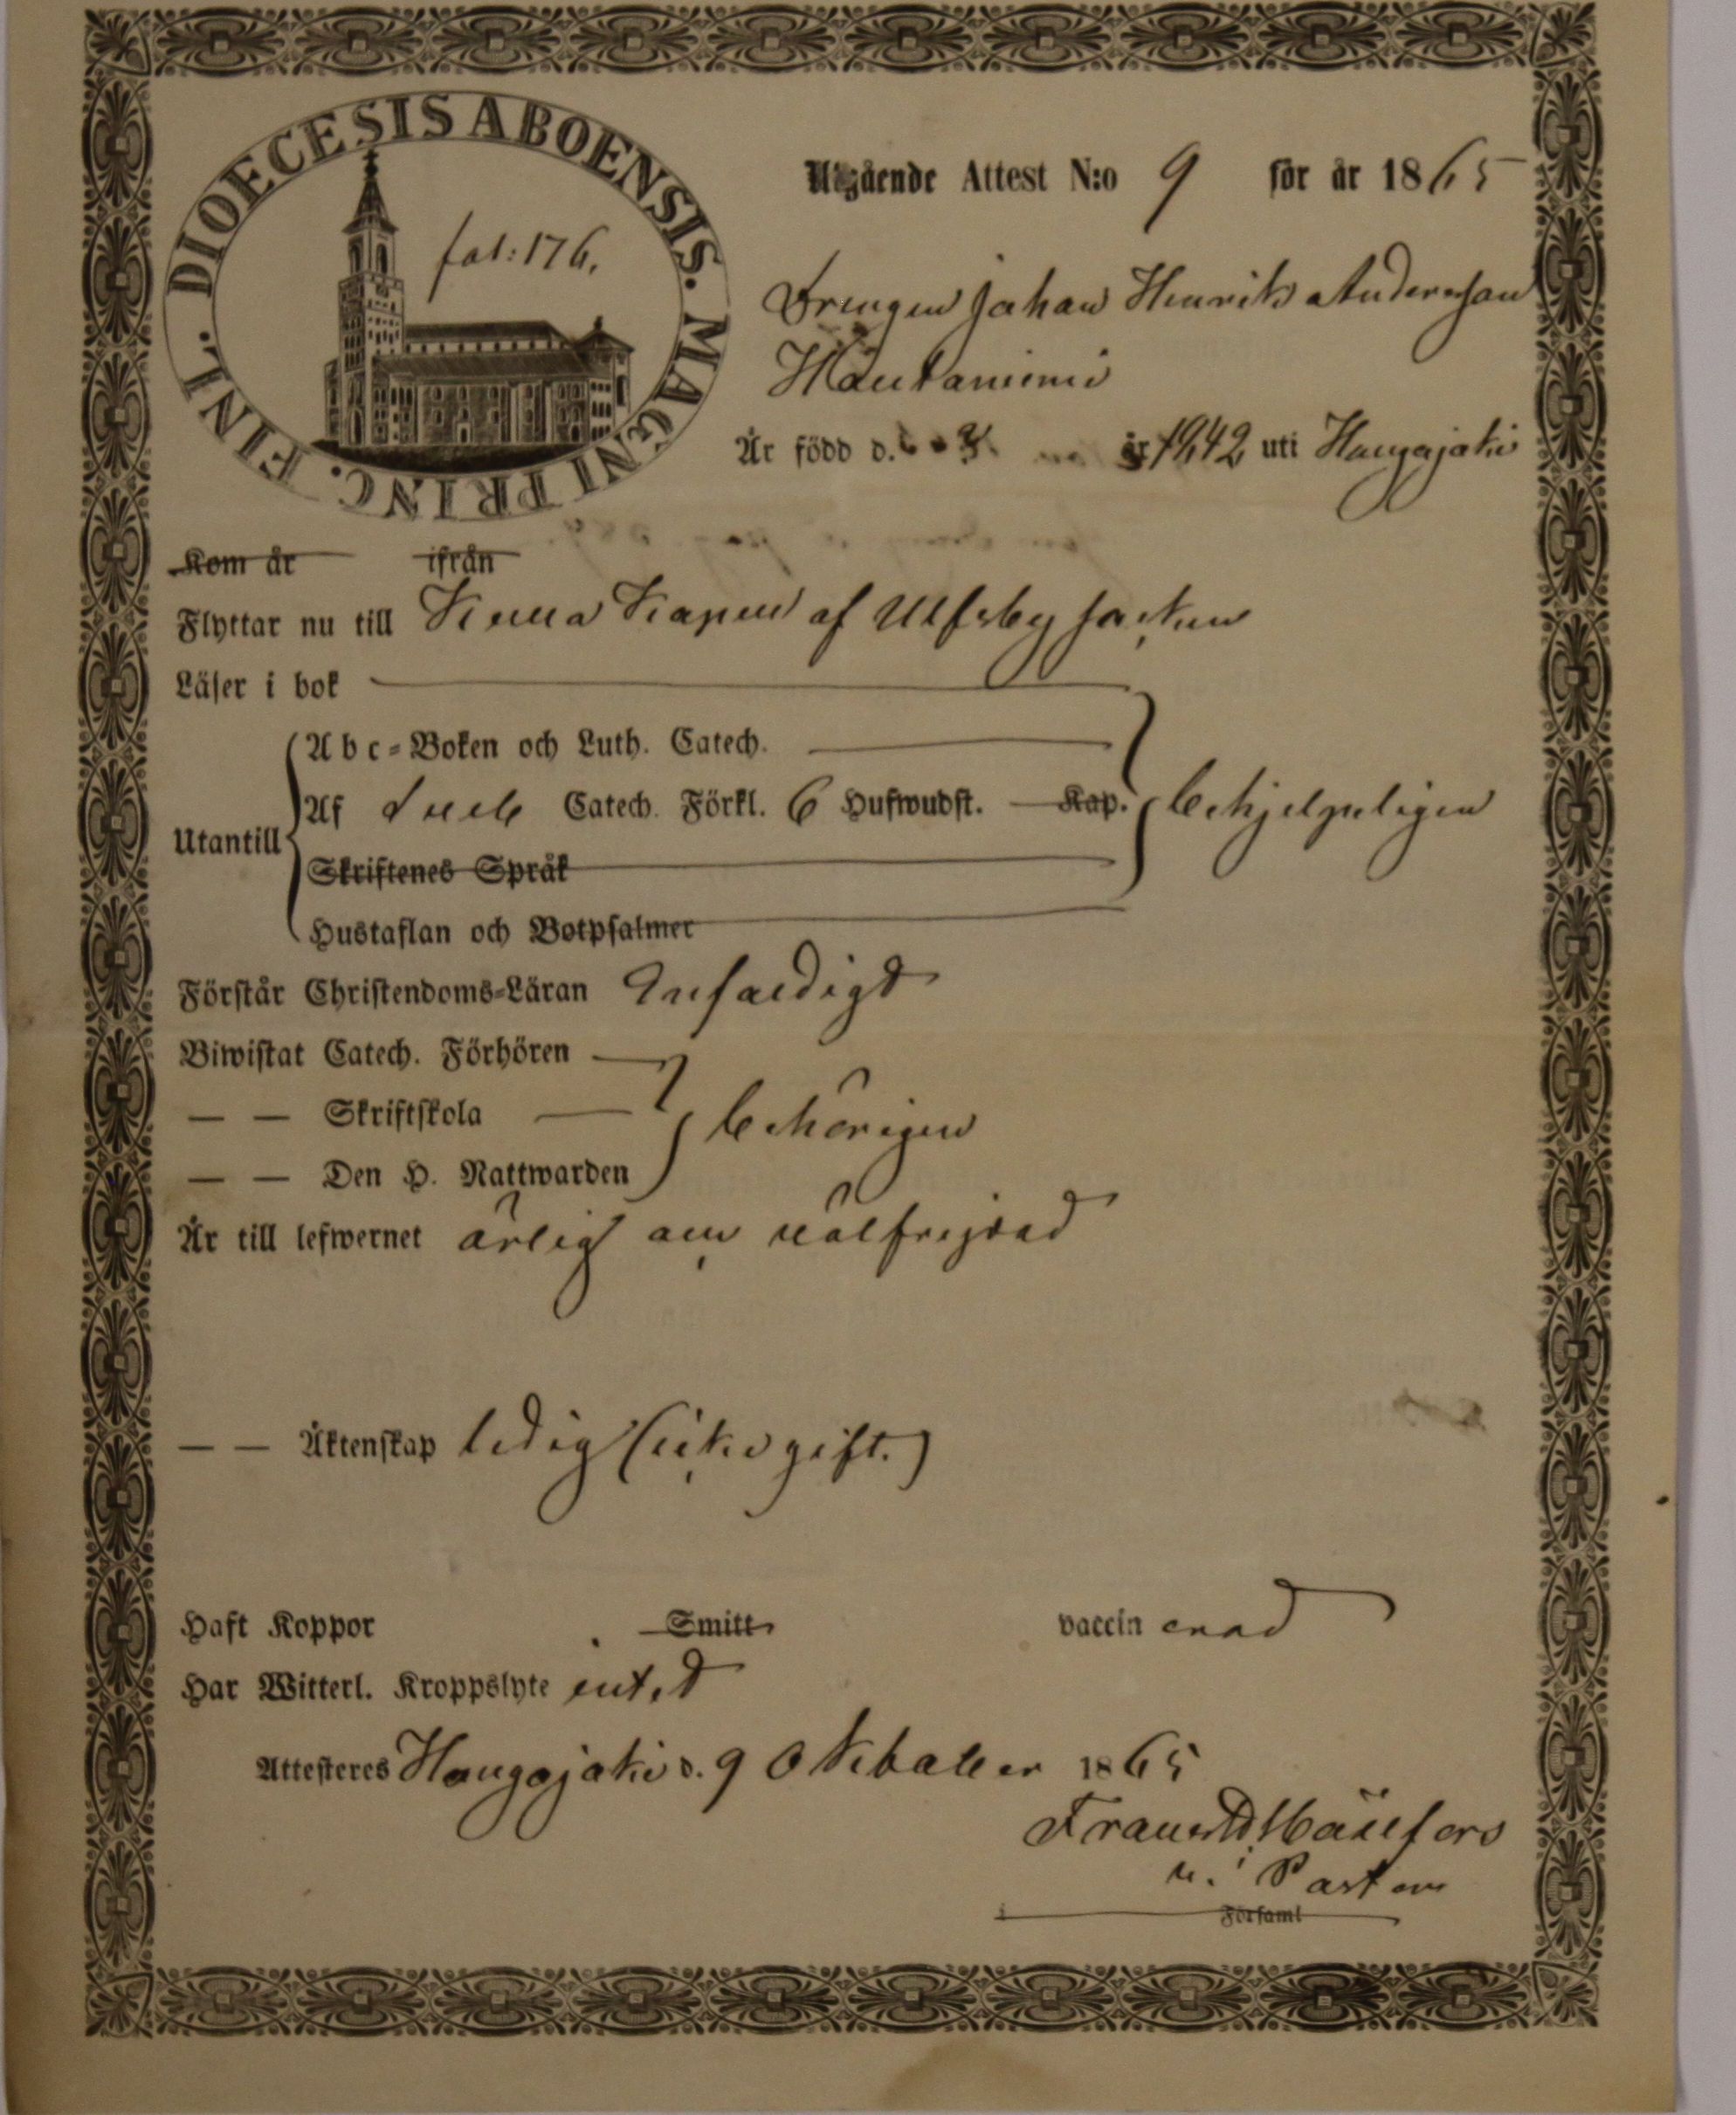 DIOECESIS ABOENSIS. MAGNI PRINC. FINL.
fol: 176.
Utgående Attest N:o 9 för år 1865
Drengen Johan Henrik Andersson
Hautaniemi
Är född d. år 1842 uti Hongojoki
Kom år ifrån
Flyttar nu till Kumo Kapell af Ulfsby socken
Läser i bok
Abc-Boken och Luth. Catech.
Utantill
Af Sveb. Catech. Förkl. 6 Hufwudst. Kap. behjelpeligen
Skriftenes Språk
Hustaflan och Botpsalmer
Förstår Christendoms-Läran Enfaldigt
Biwistat Catech. Förhören
— — Skriftskola behörigen
— — Den H. Nattwarden
Är till lefwernet ärlig och välfrejdad
— — Äktenskap ledig (icke gift.)
Haft Koppor Smitt vaccinerad
Har Witterl. Kroppslyte intet
Attesteres Hongojoki d. 9 Oktober 1865
v. Pastor
Församl